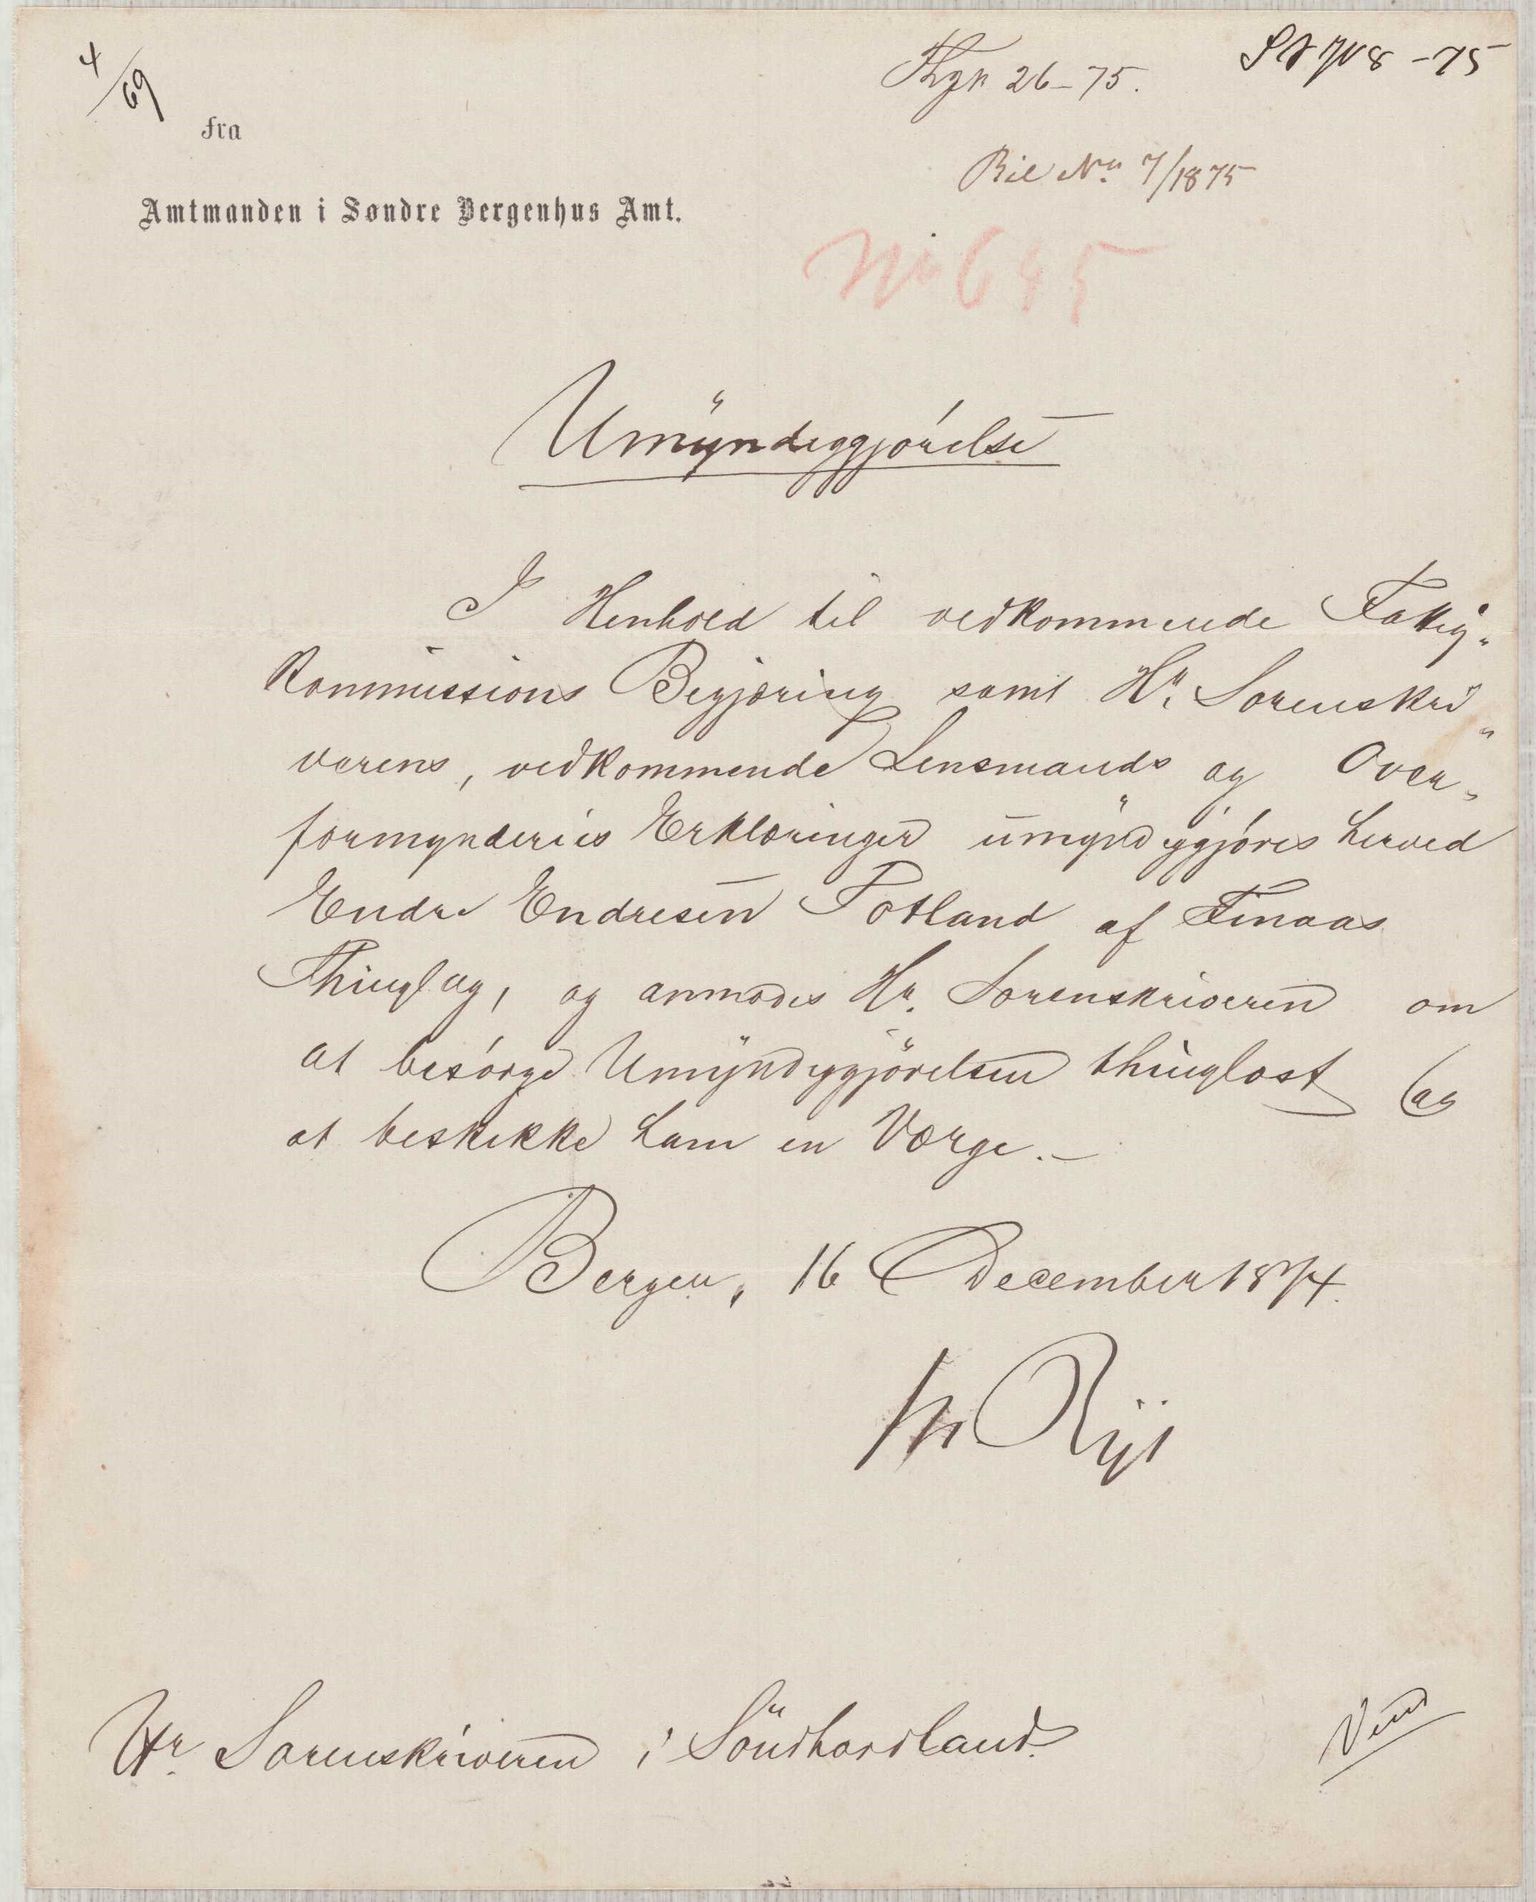 4/69
26-75.
-75
fra
Amtmanden i Søndre Bergenhus Amt.
Bil No. 7/1875
No 645
Umÿndiggjórelse
I Henhold til vedkommende Fattig„
kommissions Begjæring samt Hr. Sorenskri„
verens, vedkommende Lensmands og Over„
formynderies Erklæringer umÿndiggjóres herved
Endre Endresen Totland af Finaas
Thinglag, og anmodes Hr. Sorenskriveren om
at besórge Umÿndiggjörelsen thinglæst og
at beskikke ham en Værge.–
Bergen, 16 December 1874.
Hr. Sorenskriveren i Söndhordland.